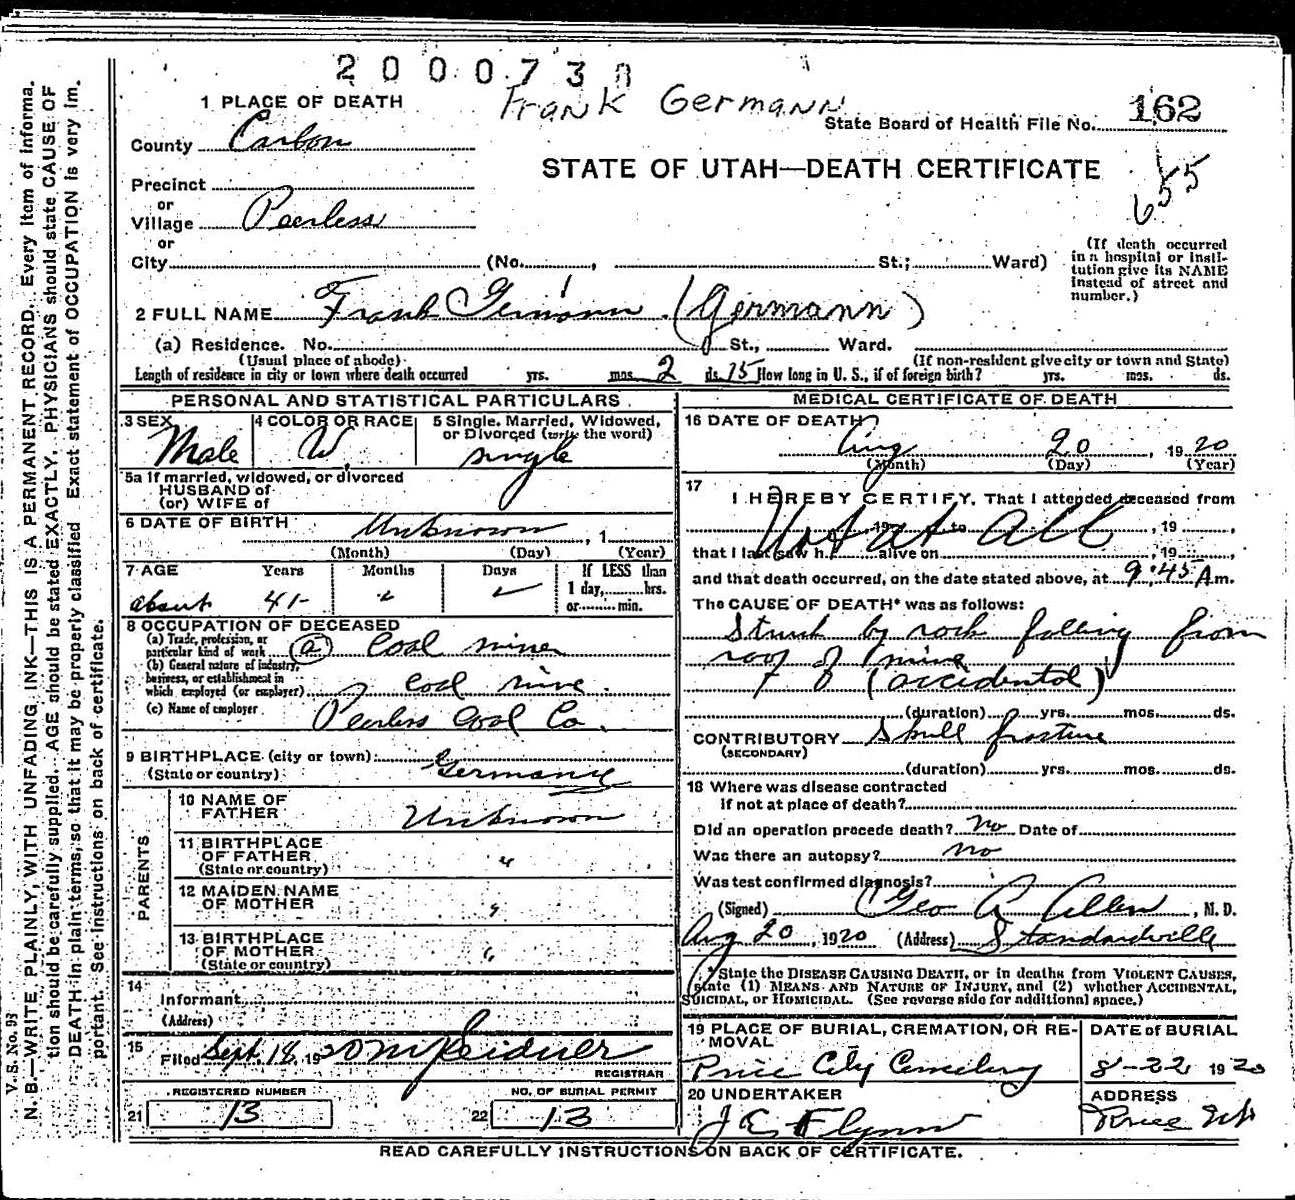 2000730
Frank Germann
1 PLACE OF DEATH
State Board of Health File No. 162
County Carbon
STATE OF UTAH—DEATH CERTIFICATE
655
Precinct
or
Village Peerless
or
City (No. , St.; Ward)
(If death occurred
in a hospital or insti-
tution give its NAME
instead of street and
number.)
2 FULL NAME Frank Germann (Germann)
(a) Residence. No. St., Ward.
(Usual place of abode) (If non-resident give city or town and State)
Length of residence in city or town where death occurred yrs. mos. 2 ds. 15 How long in U. S., if of foreign birth? yrs. mos. ds.
PERSONAL AND STATISTICAL PARTICULARS
3 SEX Male
4 COLOR OR RACE W
5 Single, Married, Widowed,
or Divorced (write the word)
single
5a If married, widowed, or divorced
HUSBAND of
(or) WIFE of
6 DATE OF BIRTH Unknown , 1
(Month) (Day) (Year)
7 AGE Years Months Days If LESS than
1 day, hrs.
or min.
about 41
8 OCCUPATION OF DECEASED
(a) Trade, profession, or
particular kind of work (a) Coal miner
(b) General nature of industry,
business, or establishment in
which employed (or employer) coal mine
(c) Name of employer Peerless Coal Co.
9 BIRTHPLACE (city or town)
(State or country) Germany
PARENTS
10 NAME OF
FATHER Unknown
11 BIRTHPLACE
OF FATHER "
(State or country)
12 MAIDEN NAME
OF MOTHER "
13 BIRTHPLACE
OF MOTHER "
(State or country)
14
Informant
(Address)
15
Filed Sept. 18, 1920
REGISTRAR
REGISTERED NUMBER
21 13
NO. OF BURIAL PERMIT
22 13
MEDICAL CERTIFICATE OF DEATH
16 DATE OF DEATH
Aug 20 , 1920
(Month) (Day) (Year)
17
I HEREBY CERTIFY, That I attended deceased from
, 19 to , 19 ,
Not at all
that I last saw h alive on , 19 ,
and that death occurred, on the date stated above, at 9:45 A m.
The CAUSE OF DEATH* was as follows:
Struck by rock falling from
roof of mine
(accidental)
(duration) yrs. mos. ds.
CONTRIBUTORY Skull fracture
(SECONDARY)
(duration) yrs. mos. ds.
18 Where was disease contracted
if not at place of death?
Did an operation precede death? No Date of
Was there an autopsy? No
Was test confirmed diagnosis?
(Signed) Geo A Allen , M. D.
Aug 20 , 1920 (Address) Standardville
*State the DISEASE CAUSING DEATH, or in deaths from VIOLENT CAUSES,
state (1) MEANS AND NATURE OF INJURY, and (2) whether ACCIDENTAL,
SUICIDAL, or HOMICIDAL. (See reverse side for additional space.)
19 PLACE OF BURIAL, CREMATION, OR RE-
MOVAL
Price City Cemetery
DATE of BURIAL
8-22 1920
20 UNDERTAKER
J E Flynn
ADDRESS
Price Ut
READ CAREFULLY INSTRUCTIONS ON BACK OF CERTIFICATE.
V. S. No. 93
N. B.—WRITE PLAINLY, WITH UNFADING INK—THIS IS A PERMANENT RECORD. Every item of informa-
tion should be carefully supplied. AGE should be stated EXACTLY. PHYSICIANS should state CAUSE OF
DEATH in plain terms, so that it may be properly classified. Exact statement of OCCUPATION is very im-
portant. See instructions on back of certificate.